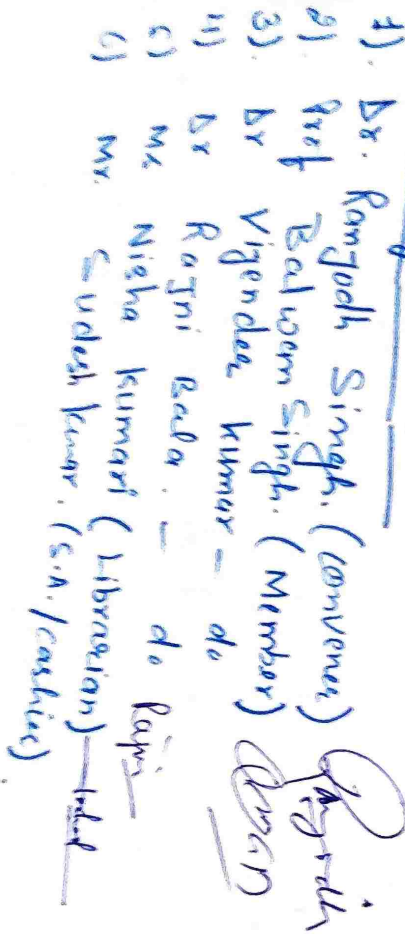 1). Dr. Ranjodh Singh. (Convener) Ranjodh
2). Prof Balwan Singh. (Member)
3). Dr Vijender Kumar - do
4) Dr Rajni Bala. - do Rajni
5) Mr. Nisha Kumari (Librarian)
6) Mr. Sudesh Kumar. (S.A./Cashier)